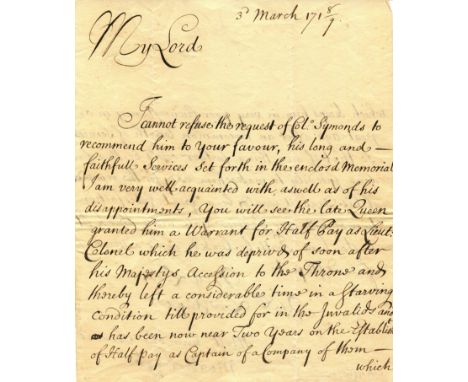 3d March 171 8/9
My Lord
I cannot refuse the request of Col.o Symonds to
recommend him to Your favour, his long and —
faithfull Services Set forth in the enclosd Memorial
I am very well acquainted with aswell as of his
disappointments, You will see the late Queen
granted him a Warrant for Half Pay as Lieut.
Colonel which he was deprived of soon after
his Majestys Accession to the Throne and
thereby left a considerable time in a Starving
Condition till provided for in the Invalids and
has been now near Two Years on the Establishm
of Half Pay as Captain of a Company of them —
which